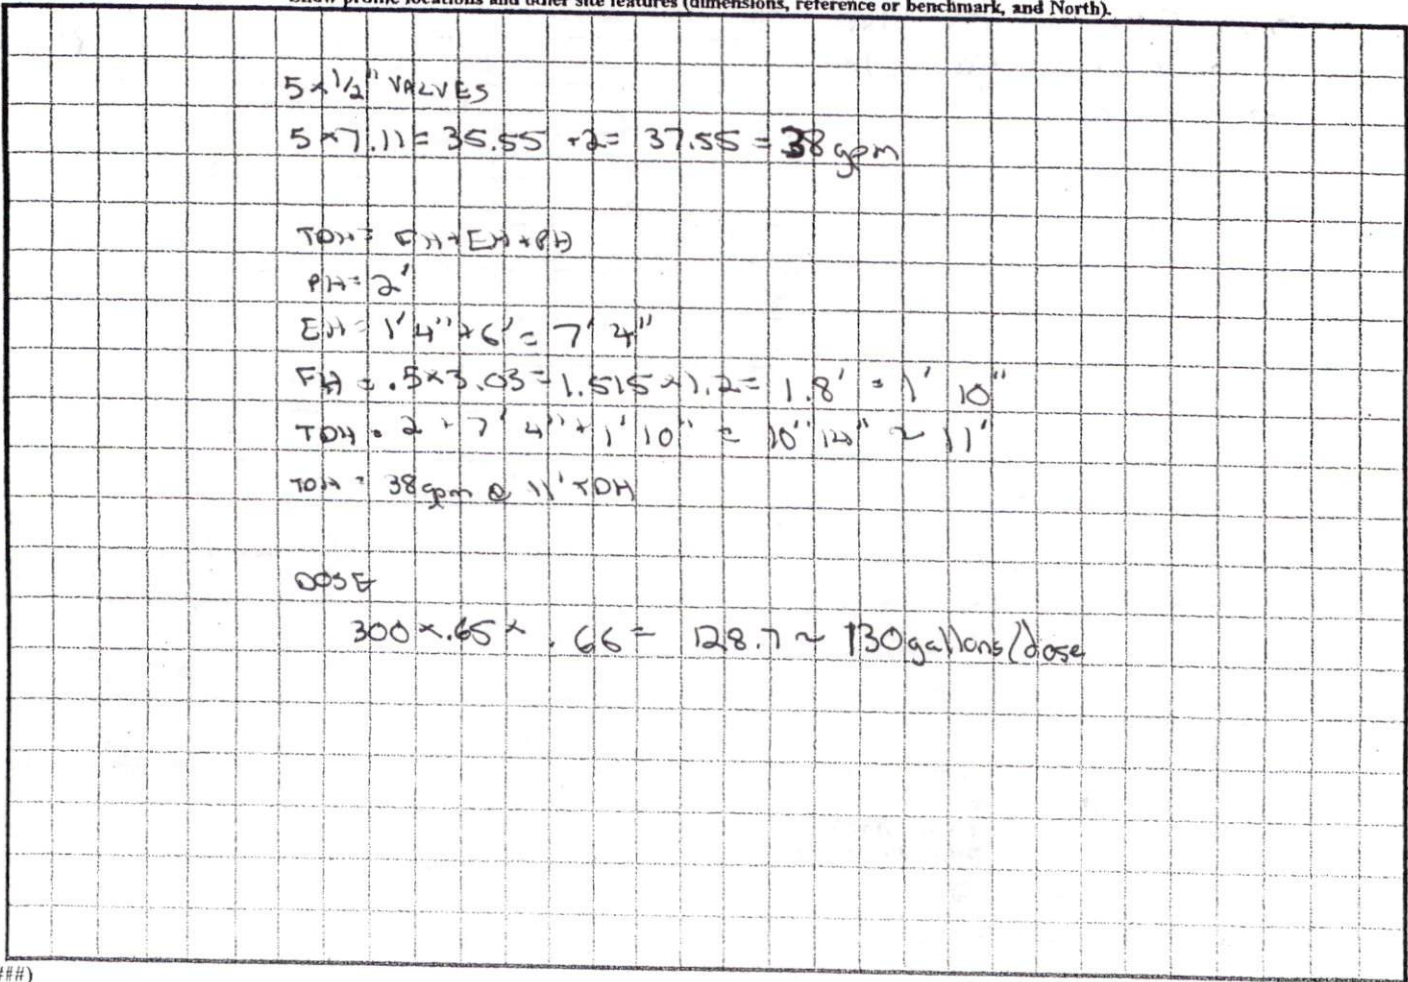 Show profile locations and other site features (dimensions, reference or benchmark, and North).
5 x 1/2" VALVES
5 x 7.11 = 35.55 +2= 37.55 = 38 gpm
TDH = FH + EH + PH
PH = 2'
EH = 1' 4" + 6' = 7' 4"
FH = .5x3.03 = 1.515 x 1.2 = 1.8' = 1' 10"
TDH = 2 + 7' 4" + 1' 10" = 10" 14" ~ 11'
TDH = 38gpm @ 11' TDH
DOSE
300 x .65 x .66 = 128.7 ~ 130 gallons/dose
###)